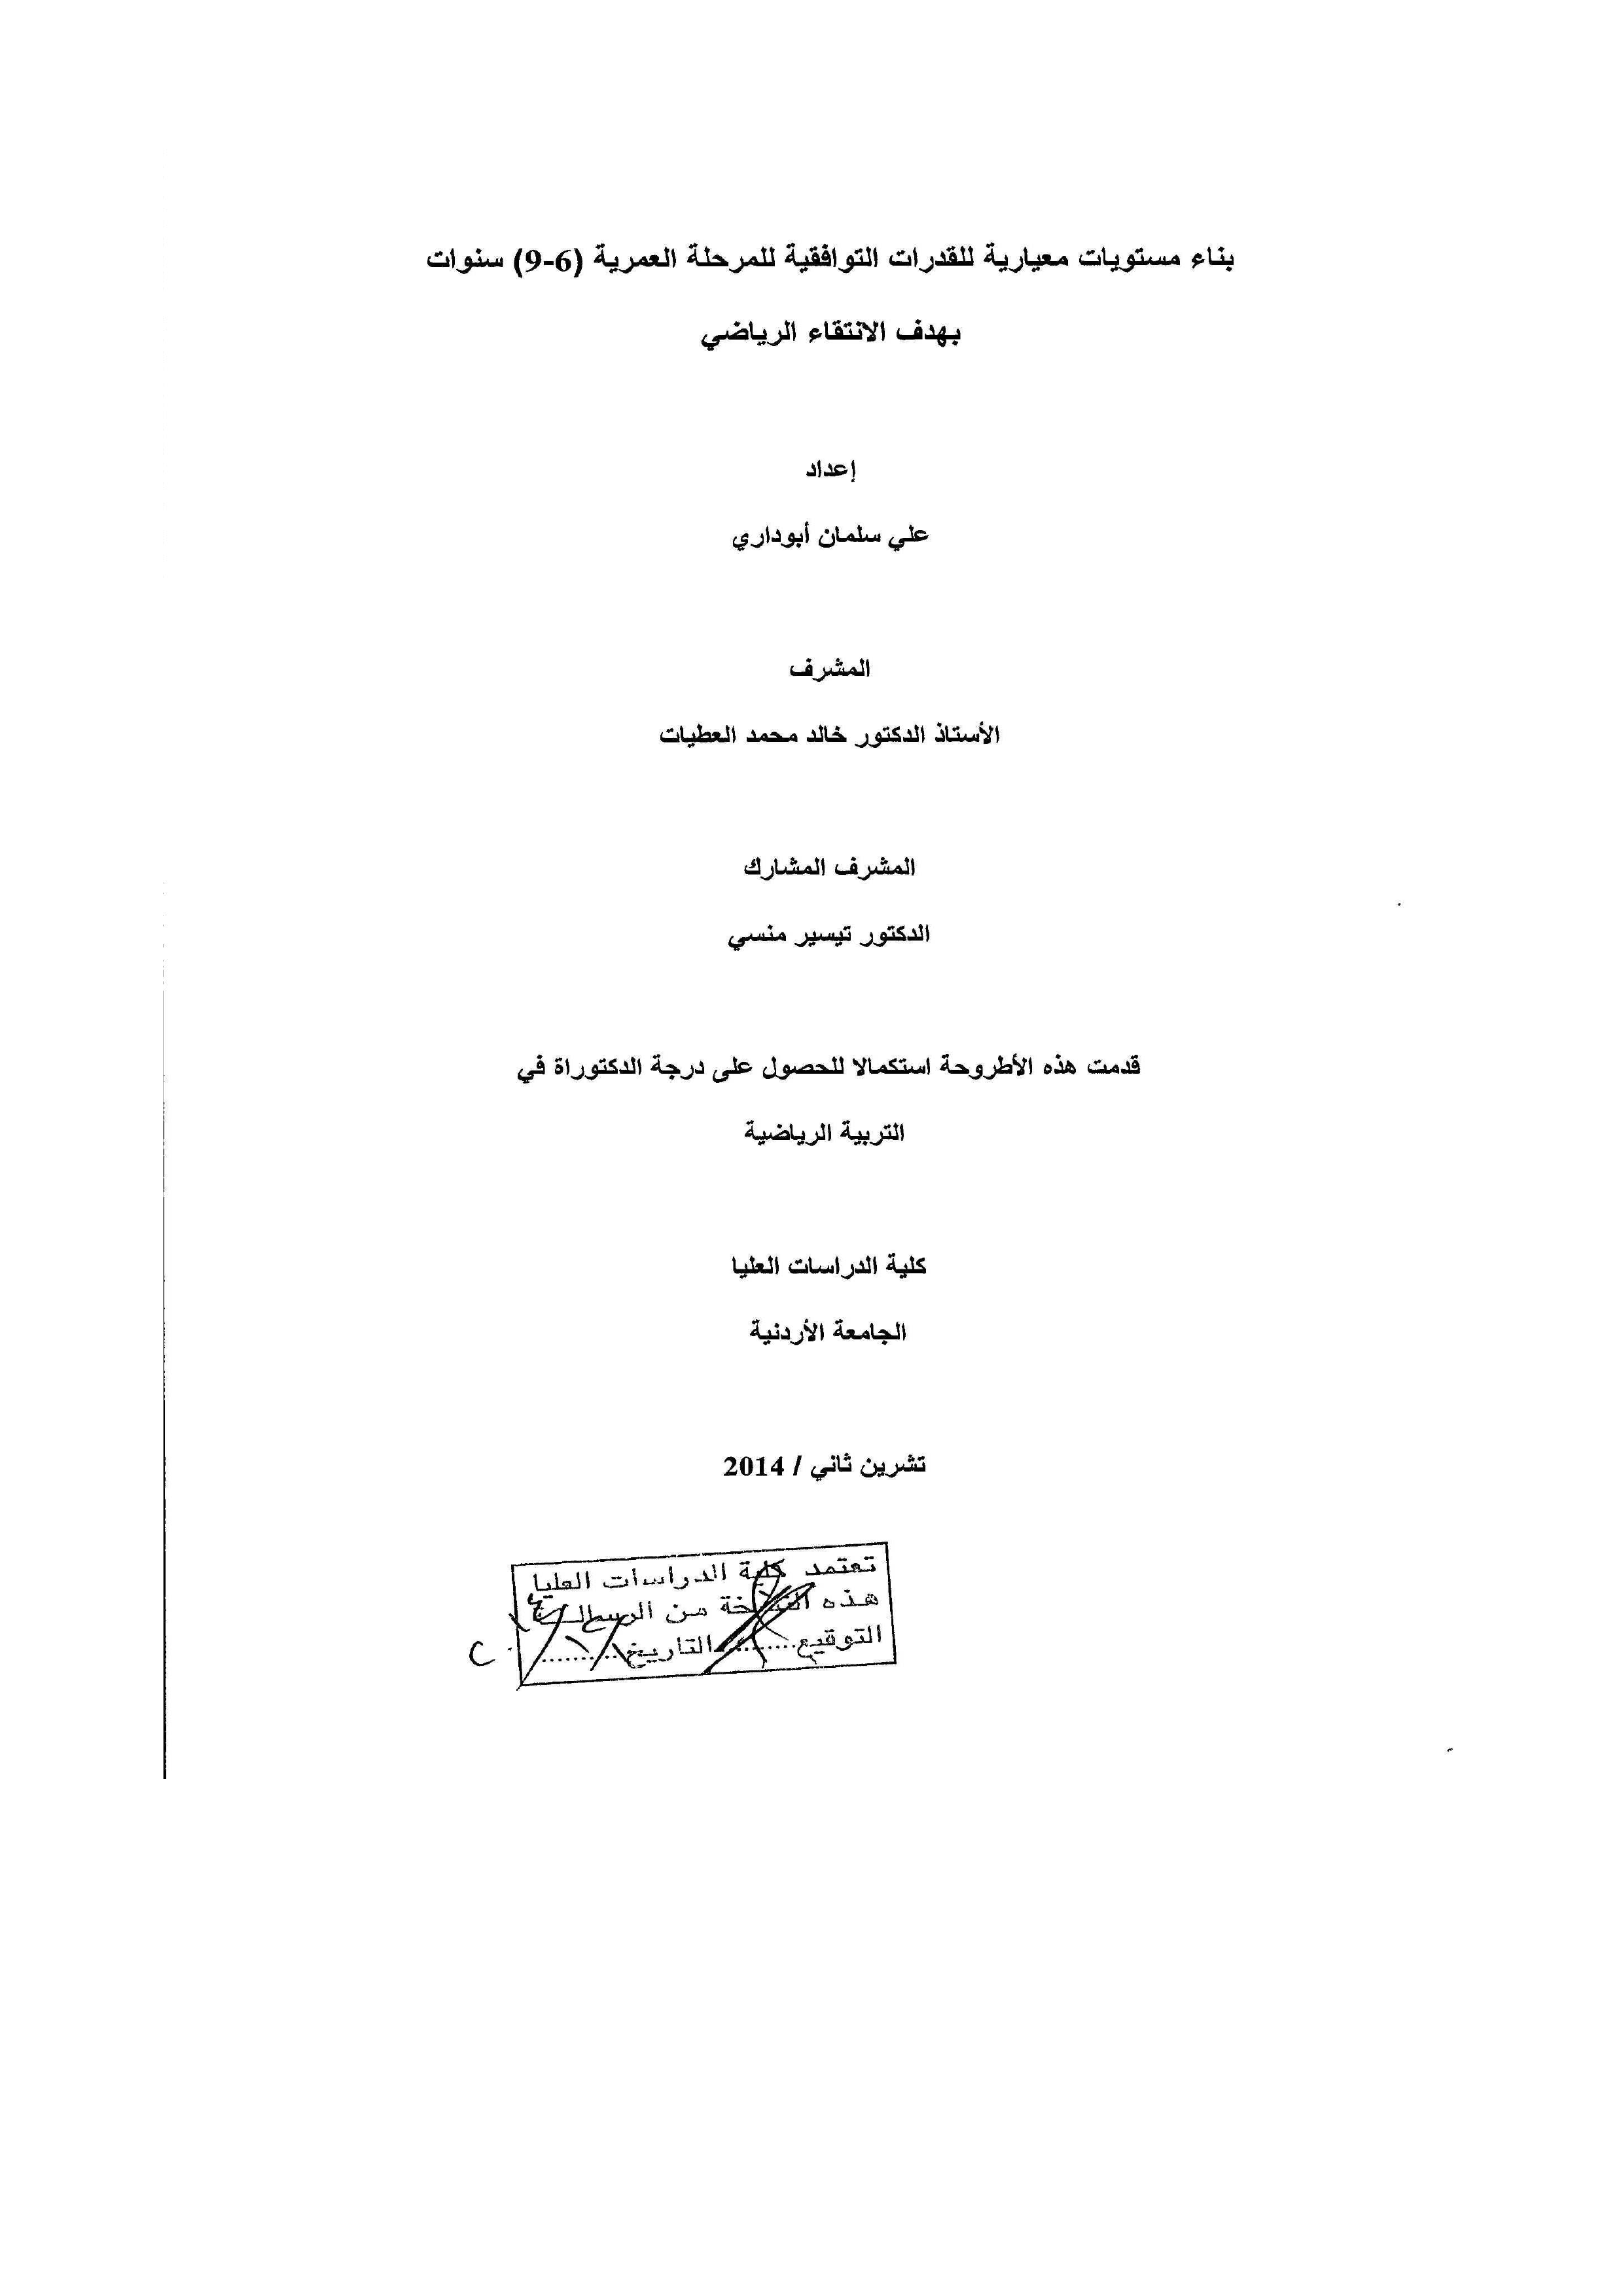 بناء مستويات معيارية للقدرات التوافقية للمرحلة العمرية (6-9) سنوات
بهدف الانتقاء الرياضي
إعداد
علي سلمان أبوداري
المشرف
الأستاذ الدكتور خالد محمد العطيات
المشرف المشارك
الدكتور تيسير منسي
قدمت هذه الأطروحة استكمالا للحصول على درجة الدكتوراة في
التربية الرياضية
كلية الدراسات العليا
الجامعة الأردنية
تشرين ثاني / 2014
تعتمد كلية الدراسات العليا
هذه النسخة من الرسالة
التوقيع.......... التاريخ..........